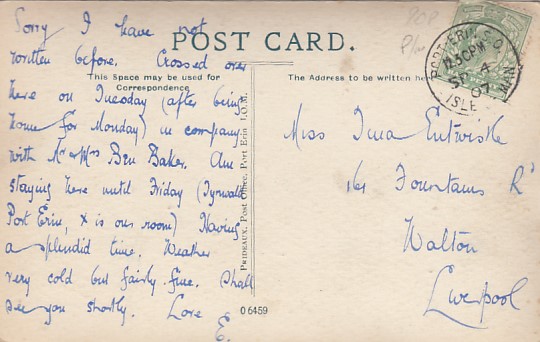 Sorry I have not
written before. Crossed over
here on Tuesday (after being
home for Monday) in company
with Mr & Mrs Ben Baker. Am
staying here until Friday (Tynwald
Port Erin, x is our room) Having
a splendid time. Weather
very cold but fairly fine. Shall
see you shortly. Love
E.
POST CARD.
This Space may be used for
Correspondence
The Address to be written here
PRIDEAUX, Post Office, Port Erin I.O.M.
06459
PORT-ERIN S.O
12.30PM
SP 4
07
ISLE MAN
Miss Ina Entwistle
164 Fountains Rd
Walton
Liverpool